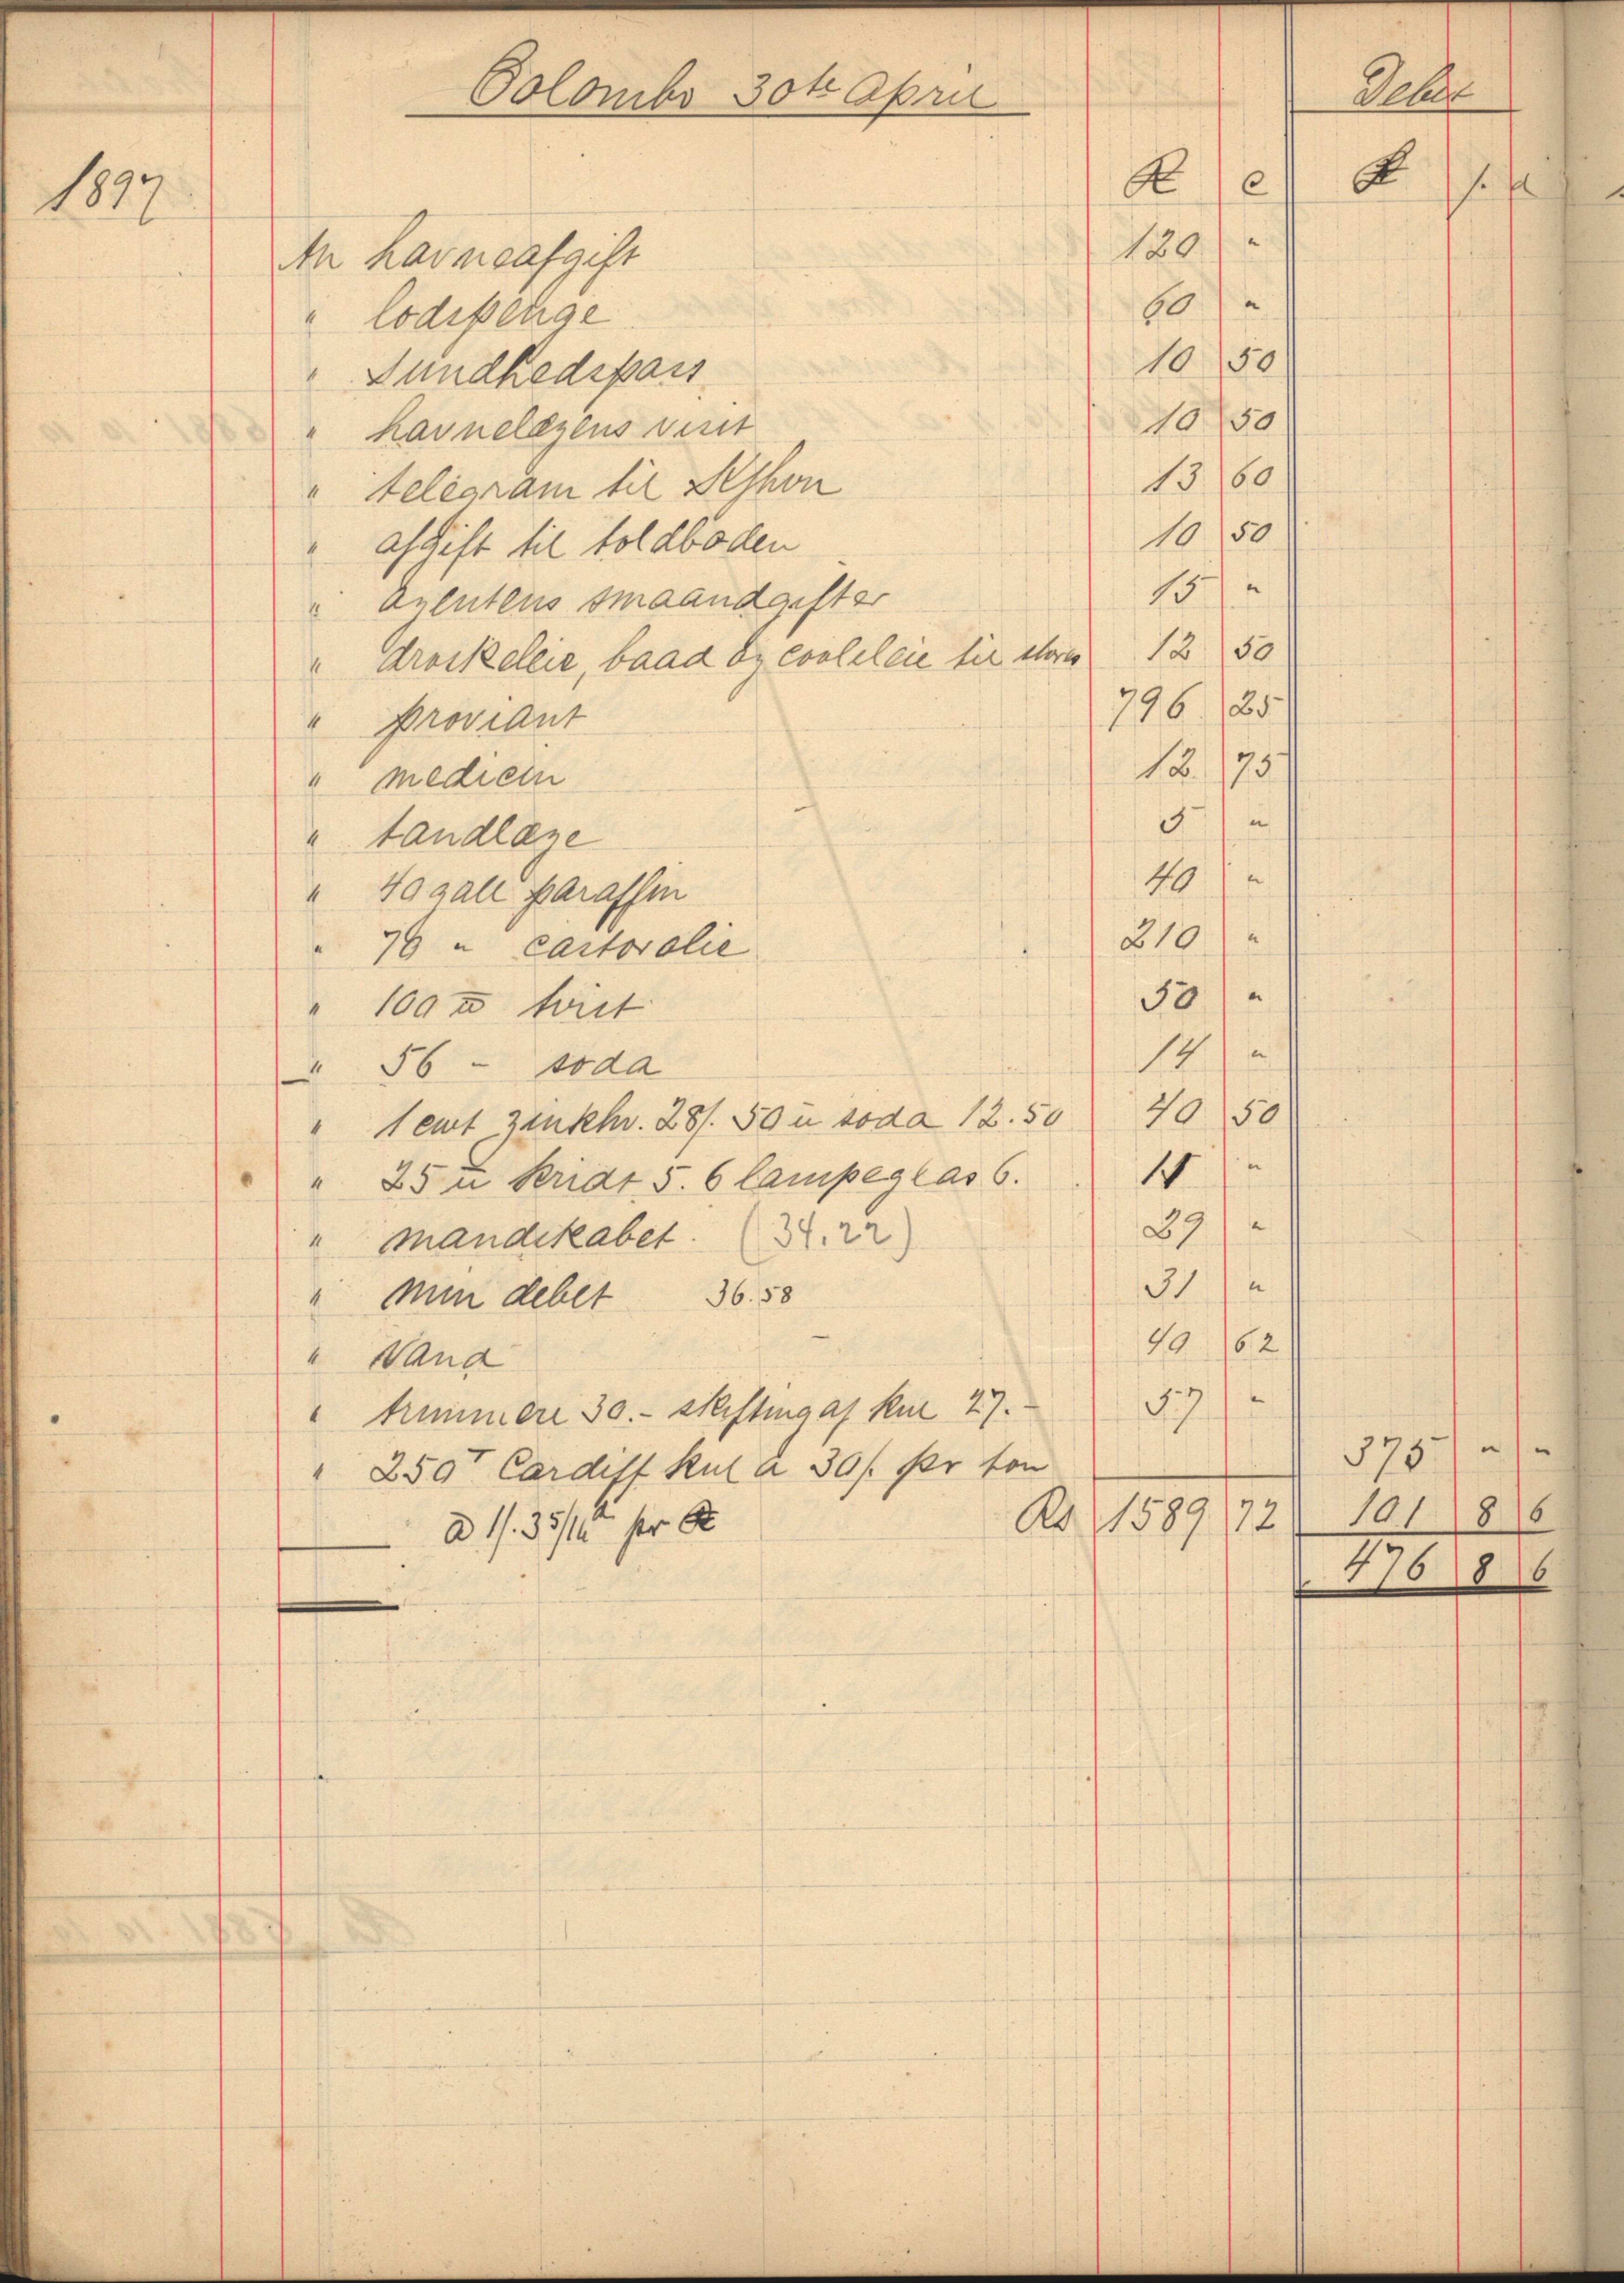 Colombo 30te April Debet
1897 R c £ s. d
An havneafgift 120 "
" lodspenge 60 "
" Sundhedspass 10 50
" havnelægens visit 10 50
" telegram til 13 60
" afgift til toldboden 10 50
" agentens smaaudgifter 15 "
" droskeleie, baad og cooleleie til stores 12 50
" proviant 796 25
" medicin 12. 75
" tandlæge 5 "
" 40 gall paraffin 40 "
" 70 " castorolie 210 "
" 100 ℔ twist 50 "
" 56 - soda 14 "
" 1 cwt zinkhv. 28/. 50 ℔ soda 12.50 40 50
" 25 ℔ kridt 5. 6 lampeglas 6. 11 "
" mandskabet. (34.22) 29 "
" min debet 36.58 31 "
" Vand 40 62
" trimmere 30.- skiftning af kul 27.- 57 "
" 250 T Cardiff kul a 30/. pr ton 375 " "
a 1/. 3 5/16 d per R Rs 1589 72 101 8 6
476 8 6